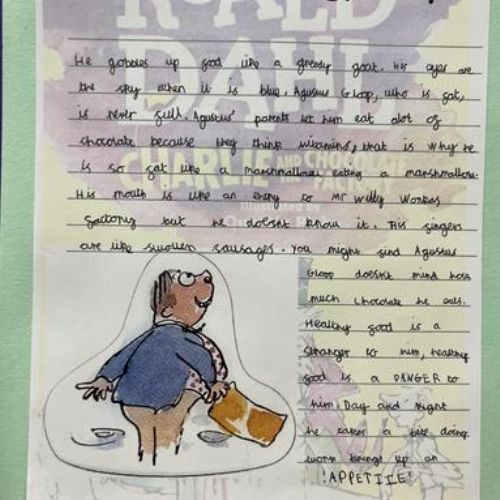 ROALD
DAHL
CHARLIE AND THE CHOCOLATE FACTORY
He gobbles up food like a greedy goat. His eyes are
the sky when it is blue. Agustus Gloop, who is fat,
is never full. Agustus' parents let him eat alot of
chocolate because they think vitamins, that is why he
is so fat like a marshmallow eating a marshmallow.
His mouth is like an entry to Mr Willy Wonkas
factory but he doesnt know it. His fingers
are like swollen sausages. You might find Agustus
Gloop doesnt mind how
much chocolate he eats.
Healthy food is a
stranger to him, healthy
food is a DANGER to
him. Day and night
he takes a bite doing
work brings up an
'APPETITE'